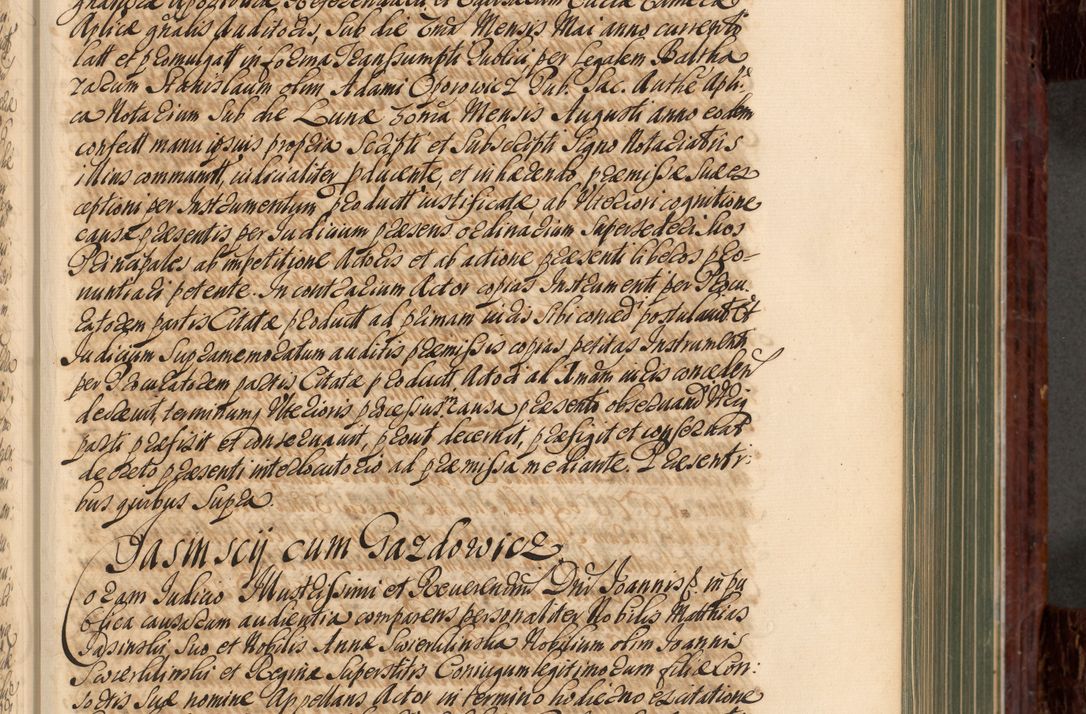 Aplicæ gñalis Auditoris, Sub die 2ma Mensis Mai anno currenti
latt et promulgatt in forma Transsumpti Publici per Legalem Baltha
zarum Stanislaum olim Adami Oporowicz Pub. Sac. Authẽ Apli
ca Notarium Sub die Lunæ 30nia Mensis Augusti anno eodem
confectt manu ipsius propria Scripti et Subscripti Signo Notariatus
illius communitt, iudicialiter producente, et in hærendo præmissæ Suæ ex
ceptioni per Instrumentum productt iustificatæ, ab Ulteriori cognitione
causæ præsentis per Iudicium præsens ordinarium Supersederi Suos
Principales ab impetitione Actoris et ab actione præsenti liberos pro-
nuntiari petente. In contrarium Actor copias Instrumenti per Procu
ratorem partis Citatæ productt ad primam iuris Sibi conced postulavit Et
Iudicium Supramemoratum auditis præmissis copias petitas Instrumenti
per Procuratorem partis Citatæ productt Actori ad 1mam iuris concedend
decrevit, terminum Ulterioris processus causa præsenti observand Utriq
parti præfixit et conservavit, prout decernit, præfigit et conservat
decreto præsenti interlocutorio ad præmissa mediante. Præsenti:
bus quibus Supra.
Jasinscij cum Gazdowicz
oram Iudicio Illustrissimi et Reverendssi Dni Joannis P. in pu
blica causarum audientia comparens personaliter Nobilis Matthias
Jasinski Suo et Nobilis Annæ Swierklinska Nobilium olim Joannis
Swierklinski et Reginæ Superstitis Coniugum legitimorum filiæ Con:
sortis Suæ nomine Appellans Actor in termino hodierno ex citatione